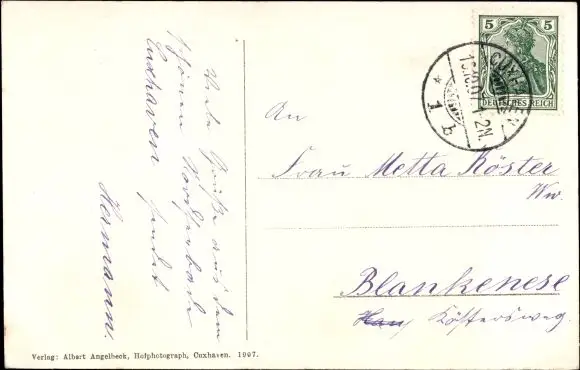 Viele Grüße aus dem
schönen Nordseebade
Cuxhaven sendet
Hermann.
5 5
DEUTSCHES REICH
CUXHAVEN
* 1 b
An
Frau Metta Köster
Ww.
Blankenese
Köstersweg.
Verlag: Albert Angelbeck, Hofphotograph, Cuxhaven. 1907.